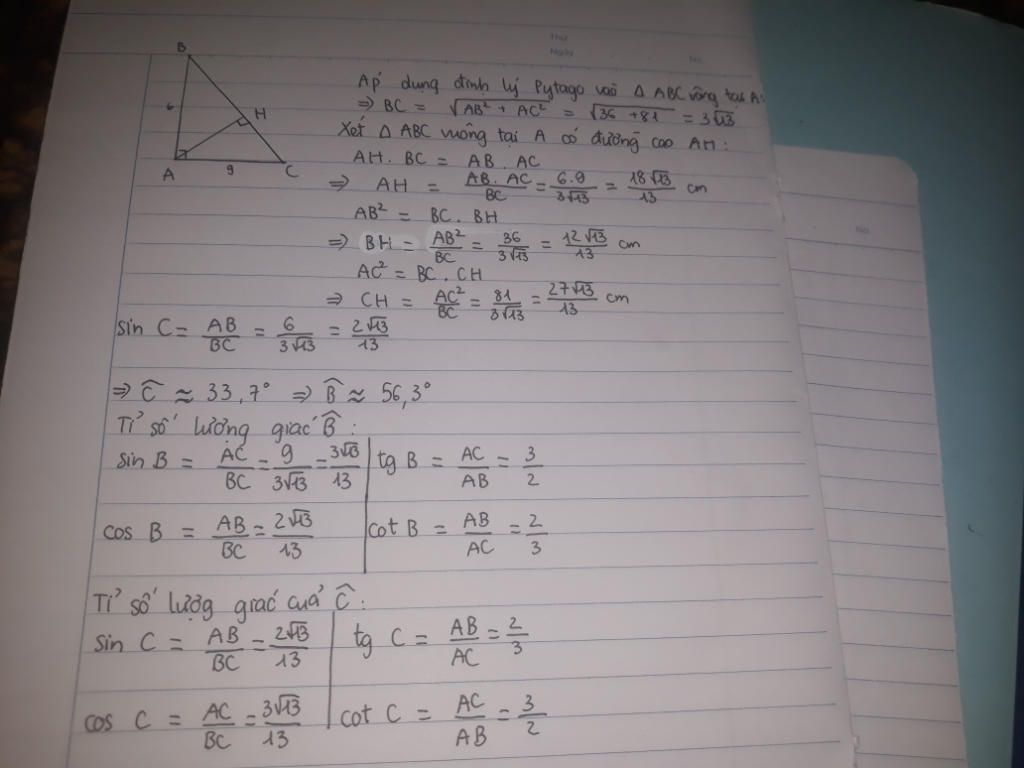 Thứ
Ngày
No.
B
6
H
A
9
C
Áp dụng định lý Pytago vào Δ ABC vuông tại A:
⇒ BC = √(AB² + AC²) = √(36 + 81) = 3√13
Xét Δ ABC vuông tại A có đường cao AH:
AH . BC = AB . AC
⇒ AH = AB . AC / BC = 6.9 / 3√13 = 18√13 / 13 cm
AB² = BC . BH
⇒ BH = AB² / BC = 36 / 3√13 = 12√13 / 13 cm
AC² = BC . CH
⇒ CH = AC² / BC = 81 / 3√13 = 27√13 / 13 cm
sin C = AB / BC = 6 / 3√13 = 2√13 / 13
⇒ Ĉ ≈ 33,7° ⇒ B̂ ≈ 56,3°
Tỉ số lượng giác B̂ :
sin B = AC / BC = 9 / 3√13 = 3√13 / 13 | tg B = AC / AB = 3 / 2
cos B = AB / BC = 2√13 / 13 | cot B = AB / AC = 2 / 3
Tỉ số lượng giác của Ĉ :
sin C = AB / BC = 2√13 / 13 | tg C = AB / AC = 2 / 3
cos C = AC / BC = 3√13 / 13 | cot C = AC / AB = 3 / 2
No